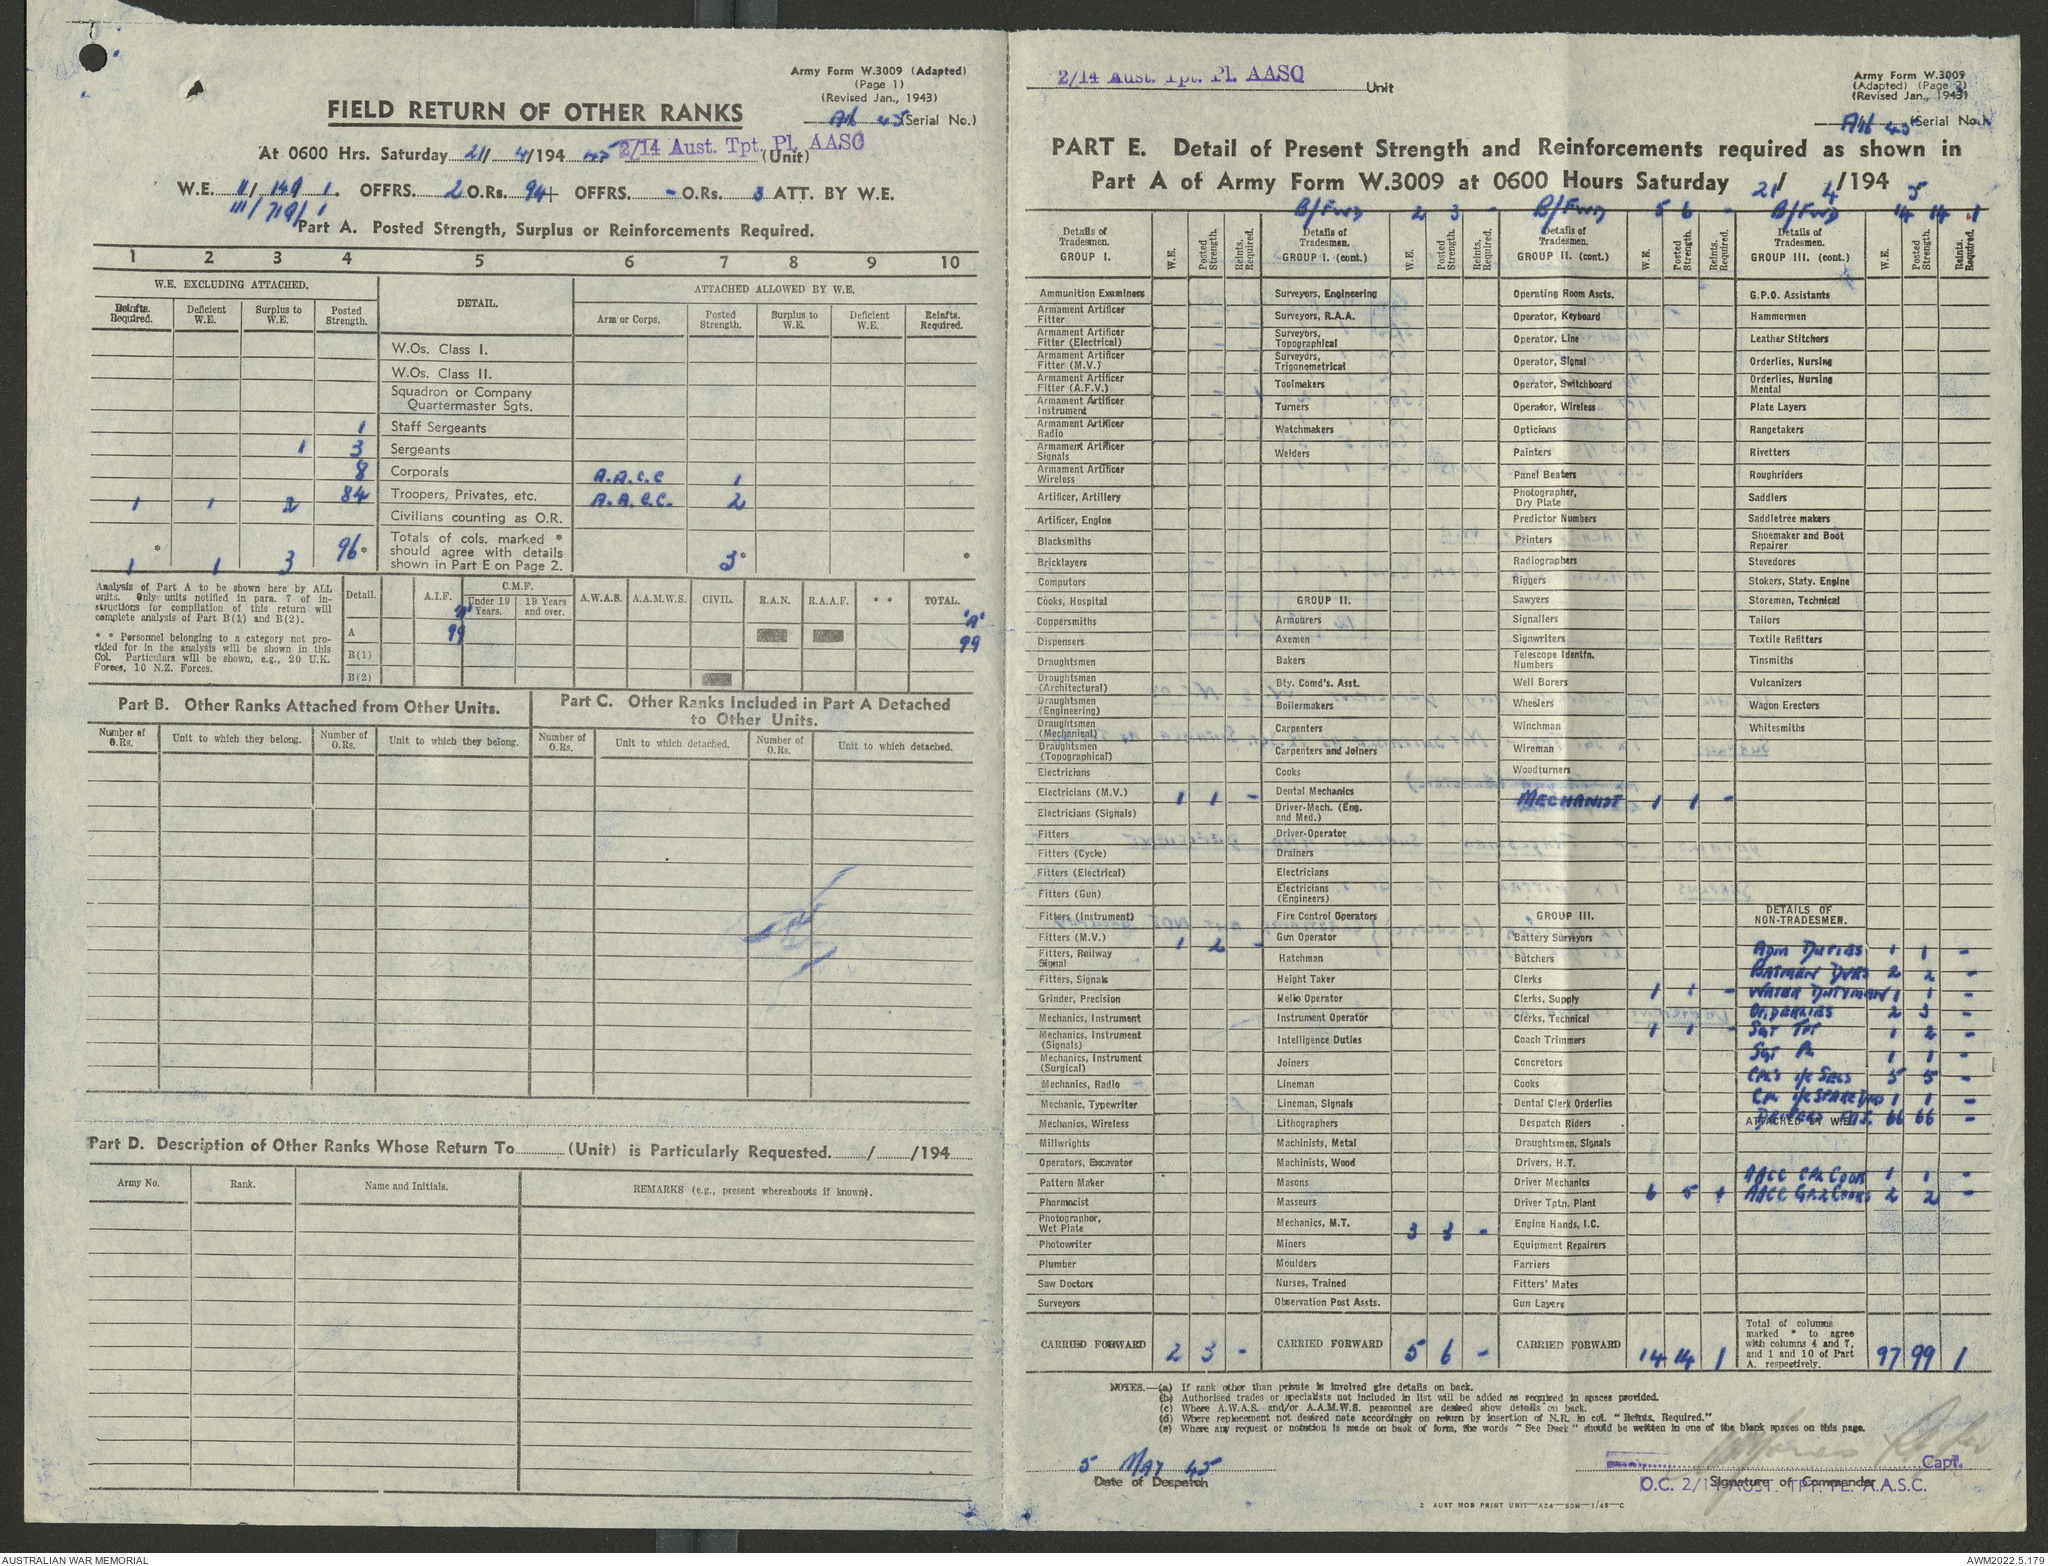 Army Form W.3009 (Adapted)
(Page 1)
(Revised Jan., 1943)
45 (Serial No.)
FIELD RETURN OF OTHER RANKS
At 0600 Hrs. Saturday 21/ 4/194 45 2/14 Aust. Tpt. Pl. AASC (Unit)
W.E. II/ 149/ 1. OFFRS. 2 O.Rs. 94+ OFFRS. - O.Rs. 3 ATT. BY W.E.
III/ 719/ 1
Part A. Posted Strength, Surplus or Reinforcements Required.
1 2 3 4 5 6 7 8 9 10
W.E. EXCLUDING ATTACHED. DETAIL. ATTACHED ALLOWED BY W.E.
Reinfts. Required. Deficient W.E. Surplus to W.E. Posted Strength. Arm or Corps. Posted Strength. Surplus to W.E. Deficient W.E. Reinfts. Required.
W.Os. Class I.
W.Os. Class II.
Squadron or Company
Quartermaster Sgts.
1 Staff Sergeants
1 3 Sergeants
8 Corporals A.A.C.C 1
1 1 2 84 Troopers, Privates, etc. A.A.C.C. 2
Civilians counting as O.R.
* 1 1 3 96* Totals of cols. marked * should agree with details shown in Part E on Page 2. 3* *
Analysis of Part A to be shown here by ALL
units. Only units notified in para. 7 of in-
structions for compilation of this return will
complete analysis of Part B(1) and B(2).
* * Personnel belonging to a category not pro-
vided for in the analysis will be shown in this
Col. Particulars will be shown, e.g., 20 U.K.
Forces, 10 N.Z. Forces.
Detail. A.I.F. C.M.F. Under 19 Years. 19 Years and over. A.W.A.S. A.A.M.W.S. CIVIL. R.A.N. R.A.A.F. * * TOTAL.
"A" "A"
A 99 99
B(1)
B(2)
Part B. Other Ranks Attached from Other Units.
Number of O.Rs. Unit to which they belong. Number of O.Rs. Unit to which they belong.
Part C. Other Ranks Included in Part A Detached
to Other Units.
Number of O.Rs. Unit to which detached. Number of O.Rs. Unit to which detached.
Part D. Description of Other Ranks Whose Return To (Unit) is Particularly Requested. / /194
Army No. Rank. Name and Initials. REMARKS (e.g., present whereabouts if known).
2/14 Aust. Tpt. Pl. AASC Unit
Army Form W.3009
(Adapted) (Page 2)
(Revised Jan., 1943)
45 (Serial No.)
PART E. Detail of Present Strength and Reinforcements required as shown in
Part A of Army Form W.3009 at 0600 Hours Saturday 21/ 4/194 5
B/Fwd 2 3 - B/Fwd 5 6 - B/Fwd 14 14 1
Details of Tradesmen. GROUP I. W.E. Posted Strength. Reints. Required.
Ammunition Examiners
Armament Artificer Fitter
Armament Artificer Fitter (Electrical)
Armament Artificer Fitter (M.V.)
Armament Artificer Fitter (A.F.V.)
Armament Artificer Instrument
Armament Artificer Radio
Armament Artificer Signals
Armament Artificer Wireless
Artificer, Artillery
Artificer, Engine
Blacksmiths
Bricklayers
Computors
Cooks, Hospital
Coppersmiths
Dispensers
Draughtsmen
Draughtsmen (Architectural)
Draughtsmen (Engineering)
Draughtsmen (Mechanical)
Draughtsmen (Topographical)
Electricians
Electricians (M.V.) 1 1 -
Electricians (Signals)
Fitters
Fitters (Cycle)
Fitters (Electrical)
Fitters (Gun)
Fitters (Instrument)
Fitters (M.V.) 1 2 -
Fitters, Railway Signal
Fitters, Signals
Grinder, Precision
Mechanics, Instrument
Mechanics, Instrument (Signals)
Mechanics, Instrument (Surgical)
Mechanics, Radio
Mechanic, Typewriter
Mechanics, Wireless
Millwrights
Operators, Excavator
Pattern Maker
Pharmacist
Photographer, Wet Plate
Photowriter
Plumber
Saw Doctors
Surveyors
CARRIED FORWARD 2 3 -
Details of Tradesmen. GROUP I. (cont.) W.E. Posted Strength. Reints. Required.
Surveyors, Engineering
Surveyors, R.A.A.
Surveyors, Topographical
Surveyors, Trigonometrical
Toolmakers
Turners
Watchmakers
Welders
GROUP II.
Armourers
Axemen
Bakers
Bty. Comd's. Asst.
Boilermakers
Carpenters
Carpenters and Joiners
Cooks
Dental Mechanics
Driver-Mech. (Eng. and Med.)
Driver-Operator
Drainers
Electricians
Electricians (Engineers)
Fire Control Operators
Gun Operator
Hatchman
Height Taker
Helio Operator
Instrument Operator
Intelligence Duties
Joiners
Lineman
Lineman, Signals
Lithographers
Machinists, Metal
Machinists, Wood
Masons
Masseurs
Mechanics, M.T. 3 3 -
Miners
Moulders
Nurses, Trained
Observation Post Assts.
CARRIED FORWARD 5 6 -
Details of Tradesmen. GROUP II. (cont.) W.E. Posted Strength. Reints. Required.
Operating Room Assts.
Operator, Keyboard
Operator, Line
Operator, Signal
Operator, Switchboard
Operator, Wireless
Opticians
Painters
Panel Beaters
Photographer, Dry Plate
Predictor Numbers
Printers
Radiographers
Riggers
Sawyers
Signallers
Signwriters
Telescope Identfn. Numbers
Well Borers
Wheelers
Winchman
Wireman
Woodturners
MECHANIST 1 1 -
GROUP III.
Battery Surveyors
Butchers
Clerks 1 1 -
Clerks, Supply
Clerks, Technical 1 1 -
Coach Trimmers
Concretors
Cooks
Dental Clerk Orderlies
Despatch Riders
Draughtsmen, Signals
Drivers, H.T.
Driver Mechanics 6 5 1
Driver Tptn. Plant
Engine Hands, I.C.
Equipment Repairers
Farriers
Fitters' Mates
Gun Layers
CARRIED FORWARD 14 14 1
Details of Tradesmen. GROUP III. (cont.) W.E. Posted Strength. Reints. Required.
G.P.O. Assistants
Hammermen
Leather Stitchers
Orderlies, Nursing
Orderlies, Nursing Mental
Plate Layers
Rangetakers
Rivetters
Roughriders
Saddlers
Saddletree makers
Shoemaker and Boot Repairer
Stevedores
Stokers, Staty. Engine
Storemen, Technical
Tailors
Textile Refitters
Tinsmiths
Vulcanizers
Wagon Erectors
Whitesmiths
DETAILS OF NON-TRADESMEN.
ADM DUTIES 1 1 -
BATMEN DVRS 2 2 -
WATER DUTYMAN 1 1 -
ORDERLIES 2 3 -
SGT TPT 1 2 -
SGT 1 1 -
CPLS I/C SECS 5 5 -
CPL I/C SPARE DVRS 1 1 -
DRIVERS 66 66 -
ATTACHED BY W.E.
AACC CPL COOK 1 1 -
AACC GP.2 COOKS 2 2 -
Total of columns marked * to agree with columns 4 and 7, and 1 and 10 of Part A. respectively. 97 99 1
NOTES.—(a) If rank other than private is involved give details on back.
(b) Authorised trades or specialists not included in list will be added as required in spaces provided.
(c) Where A.W.A.S. and/or A.A.M.W.S. personnel are desired show details on back.
(d) Where replacement not desired note accordingly on return by insertion of N.R. in col. "Reints. Required."
(e) Where any request or notation is made on back of form, the words "See Back" should be written in one of the blank spaces on this page.
5 MAY 45
Date of Despatch
Capt.
Signature of Commander
O.C. 2/14 AUST. TPT. PL. A.A.S.C.
2 AUST MOB PRINT UNIT—A24—50M—1/45—C
AUSTRALIAN WAR MEMORIAL
AWM2022.5.179